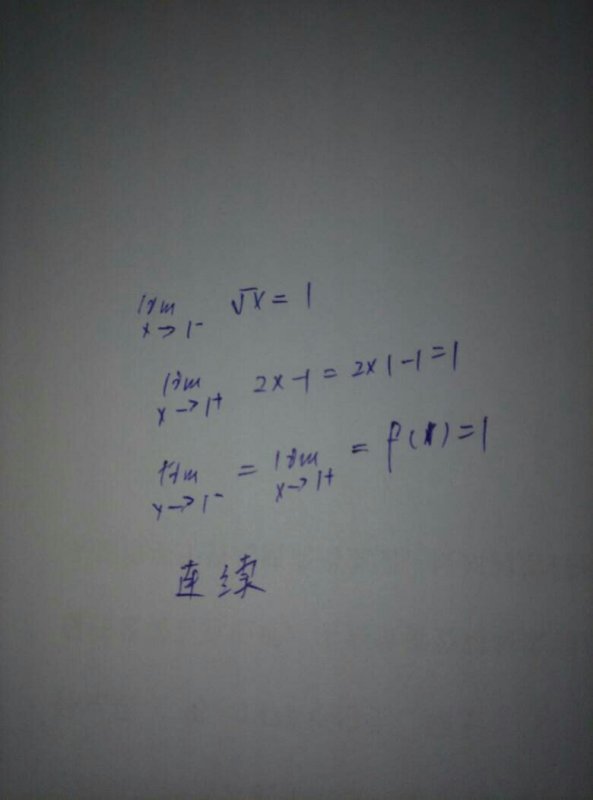 lim x→1⁻ √x = 1
lim x→1⁺ 2x-1 = 2×1-1=1
lim x→1⁻ = lim x→1⁺ = f(1)=1
连续